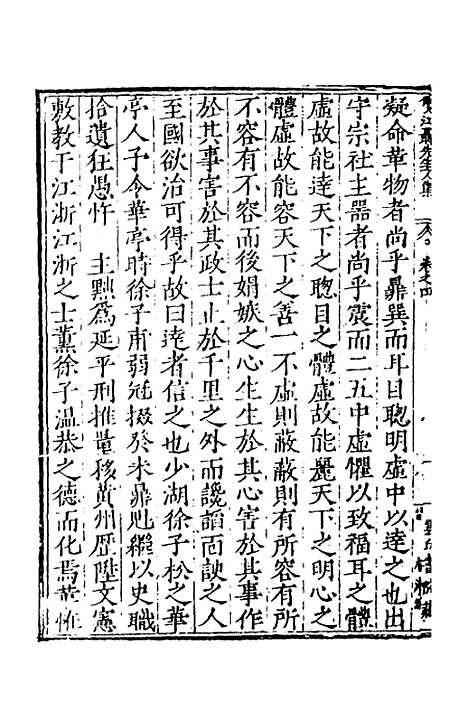 疑命革物者尚乎鼎巽而耳目聰明虛中以達之也出
守宗社主器者尚乎震而二五中虛懼以致福耳之體
虛故能達天下之聰目之體虛故能麗天下之明心之
體虛故能容天下之善一不虛則蔽蔽則有所容有所
不容有不容而後媢嫉之心生生於其心害於其事作
於其事害於其政士止於千里之外而讒謟面諛之人
至國欲治可得乎故曰達者信之也少湖徐子松之華
亭人子令華亭時徐子甫弱冠掇癸未鼎魁繼以史職
拾遺狂愚忤 主黜為延平刑推量移黃州歷陞文憲
敷教于江浙江浙之士薰徐子溫恭之德而化焉華惟
雙江聶先生文集 卷之四